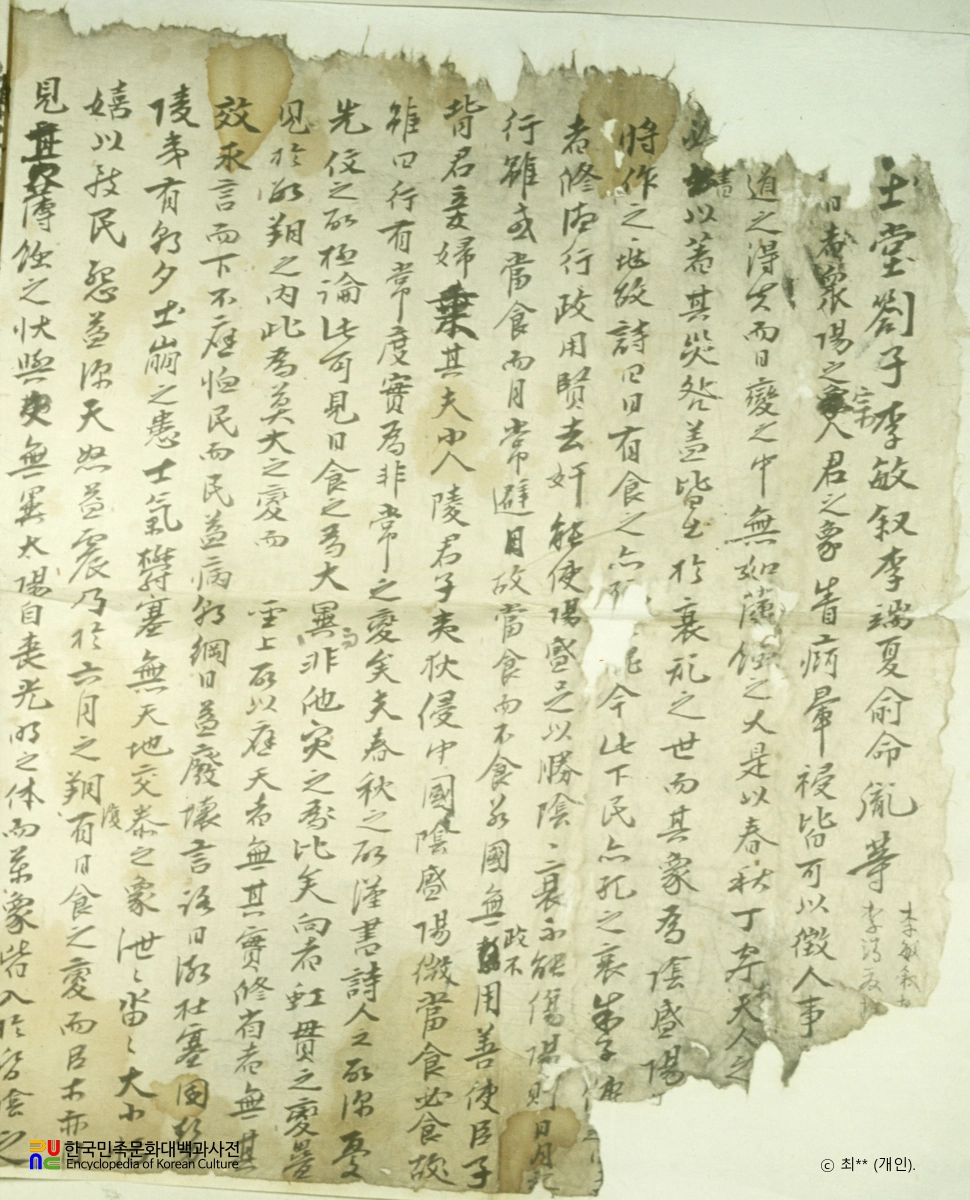 玉堂箚子 李敏叙 李端夏 俞命胤 等
李敏叙
日者衆陽之宗人君之象眚病暈祲皆可以徵人事
道之得失而日變之中無如薄蝕之大是以春秋丁寧天人之
必書以著其災咎盖皆出於衰亂之世而其象為陰盛陽
將作之
故詩曰日有食之亦孔之
今此下民亦孔之哀朱子
者修德行政用賢去奸能使陽盛足以勝陰陰衰不能傷陽則日月
行雖或當食而月常避日故當食而不食若國無政不用善使臣子
背君妾婦乘其夫小人陵君子夷狄侵中國陰盛陽微當食必食雖
雖曰行有常度實為非常之變矣夫春秋之所謹書詩人之所深憂
先儒之所極論此可見日食之為大異而非他灾之為比矣向者虹貫之變疊
見於
朔之内此為莫大之變而
聖上所以應天者無其實修省者無其
效求言而下不應恤民而民益病朝綱日益廢壞言路日漸杜塞
陵夷有朝夕土崩之患士氣欝塞無天地交泰之象泄泄沓沓大小
嬉以致民怨益深天怒益震乃於六月之朔復有日食之變而
見其薄蝕之状與
無異太陽自喪光明之体而萬象皆入於
한국민족문화대백과사전
Encyclopedia of Korean Culture
© 최** (개인).